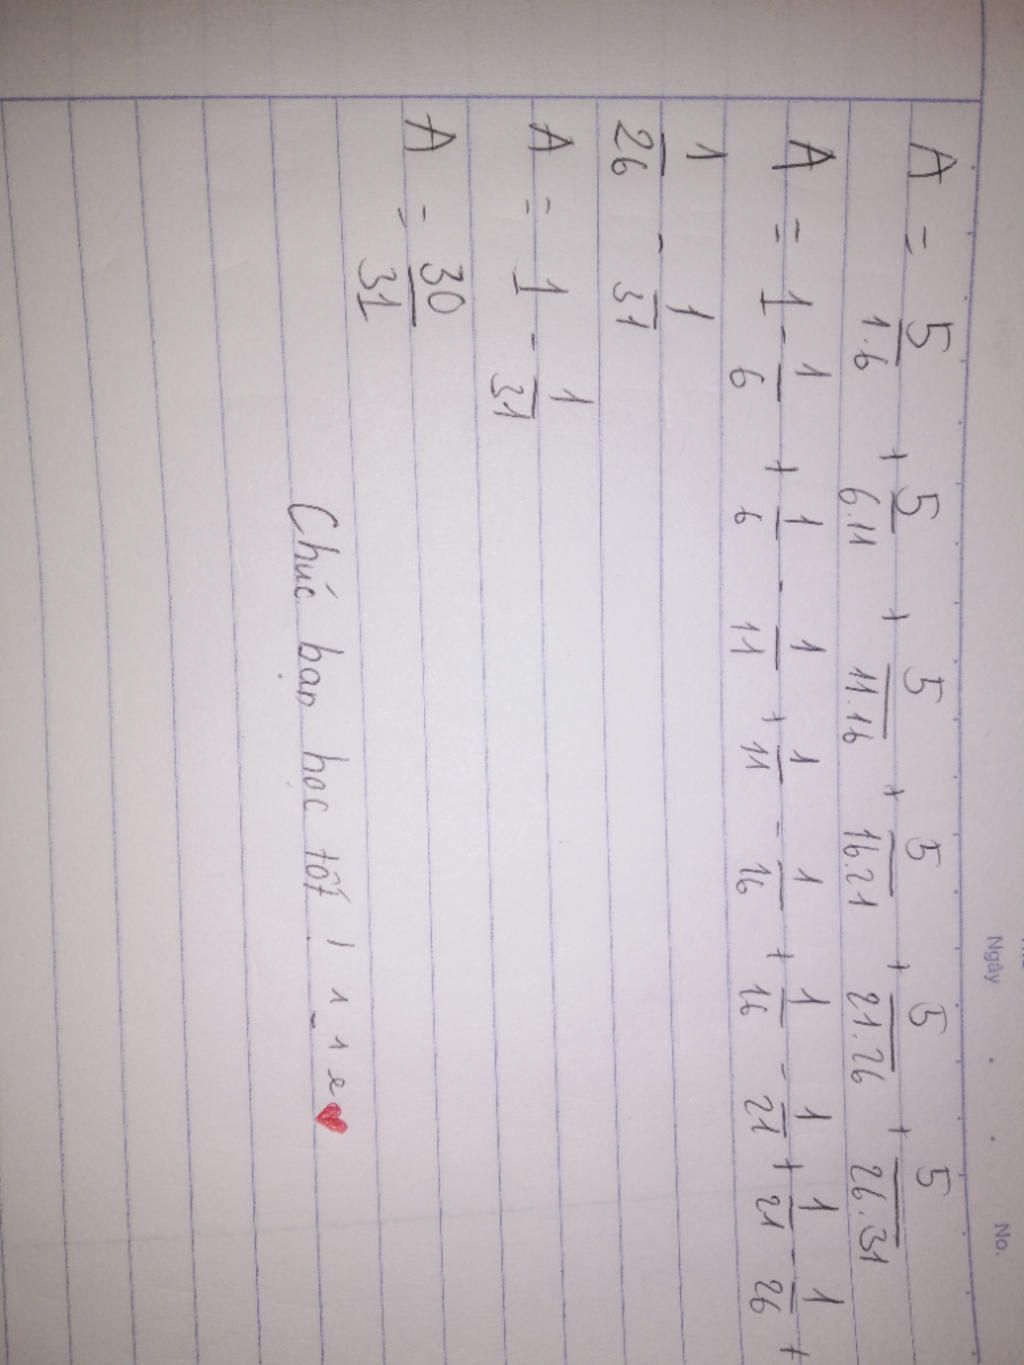 Ngày No.
A = 5/1.6 + 5/6.11 + 5/11.16 + 5/16.21 + 5/21.26 + 5/26.31
A = 1 - 1/6 + 1/6 - 1/11 + 1/11 - 1/16 + 1/16 - 1/21 + 1/21 - 1/26 +
1/26 - 1/31
A = 1 - 1/31
A = 30/31
Chúc bạn học tốt